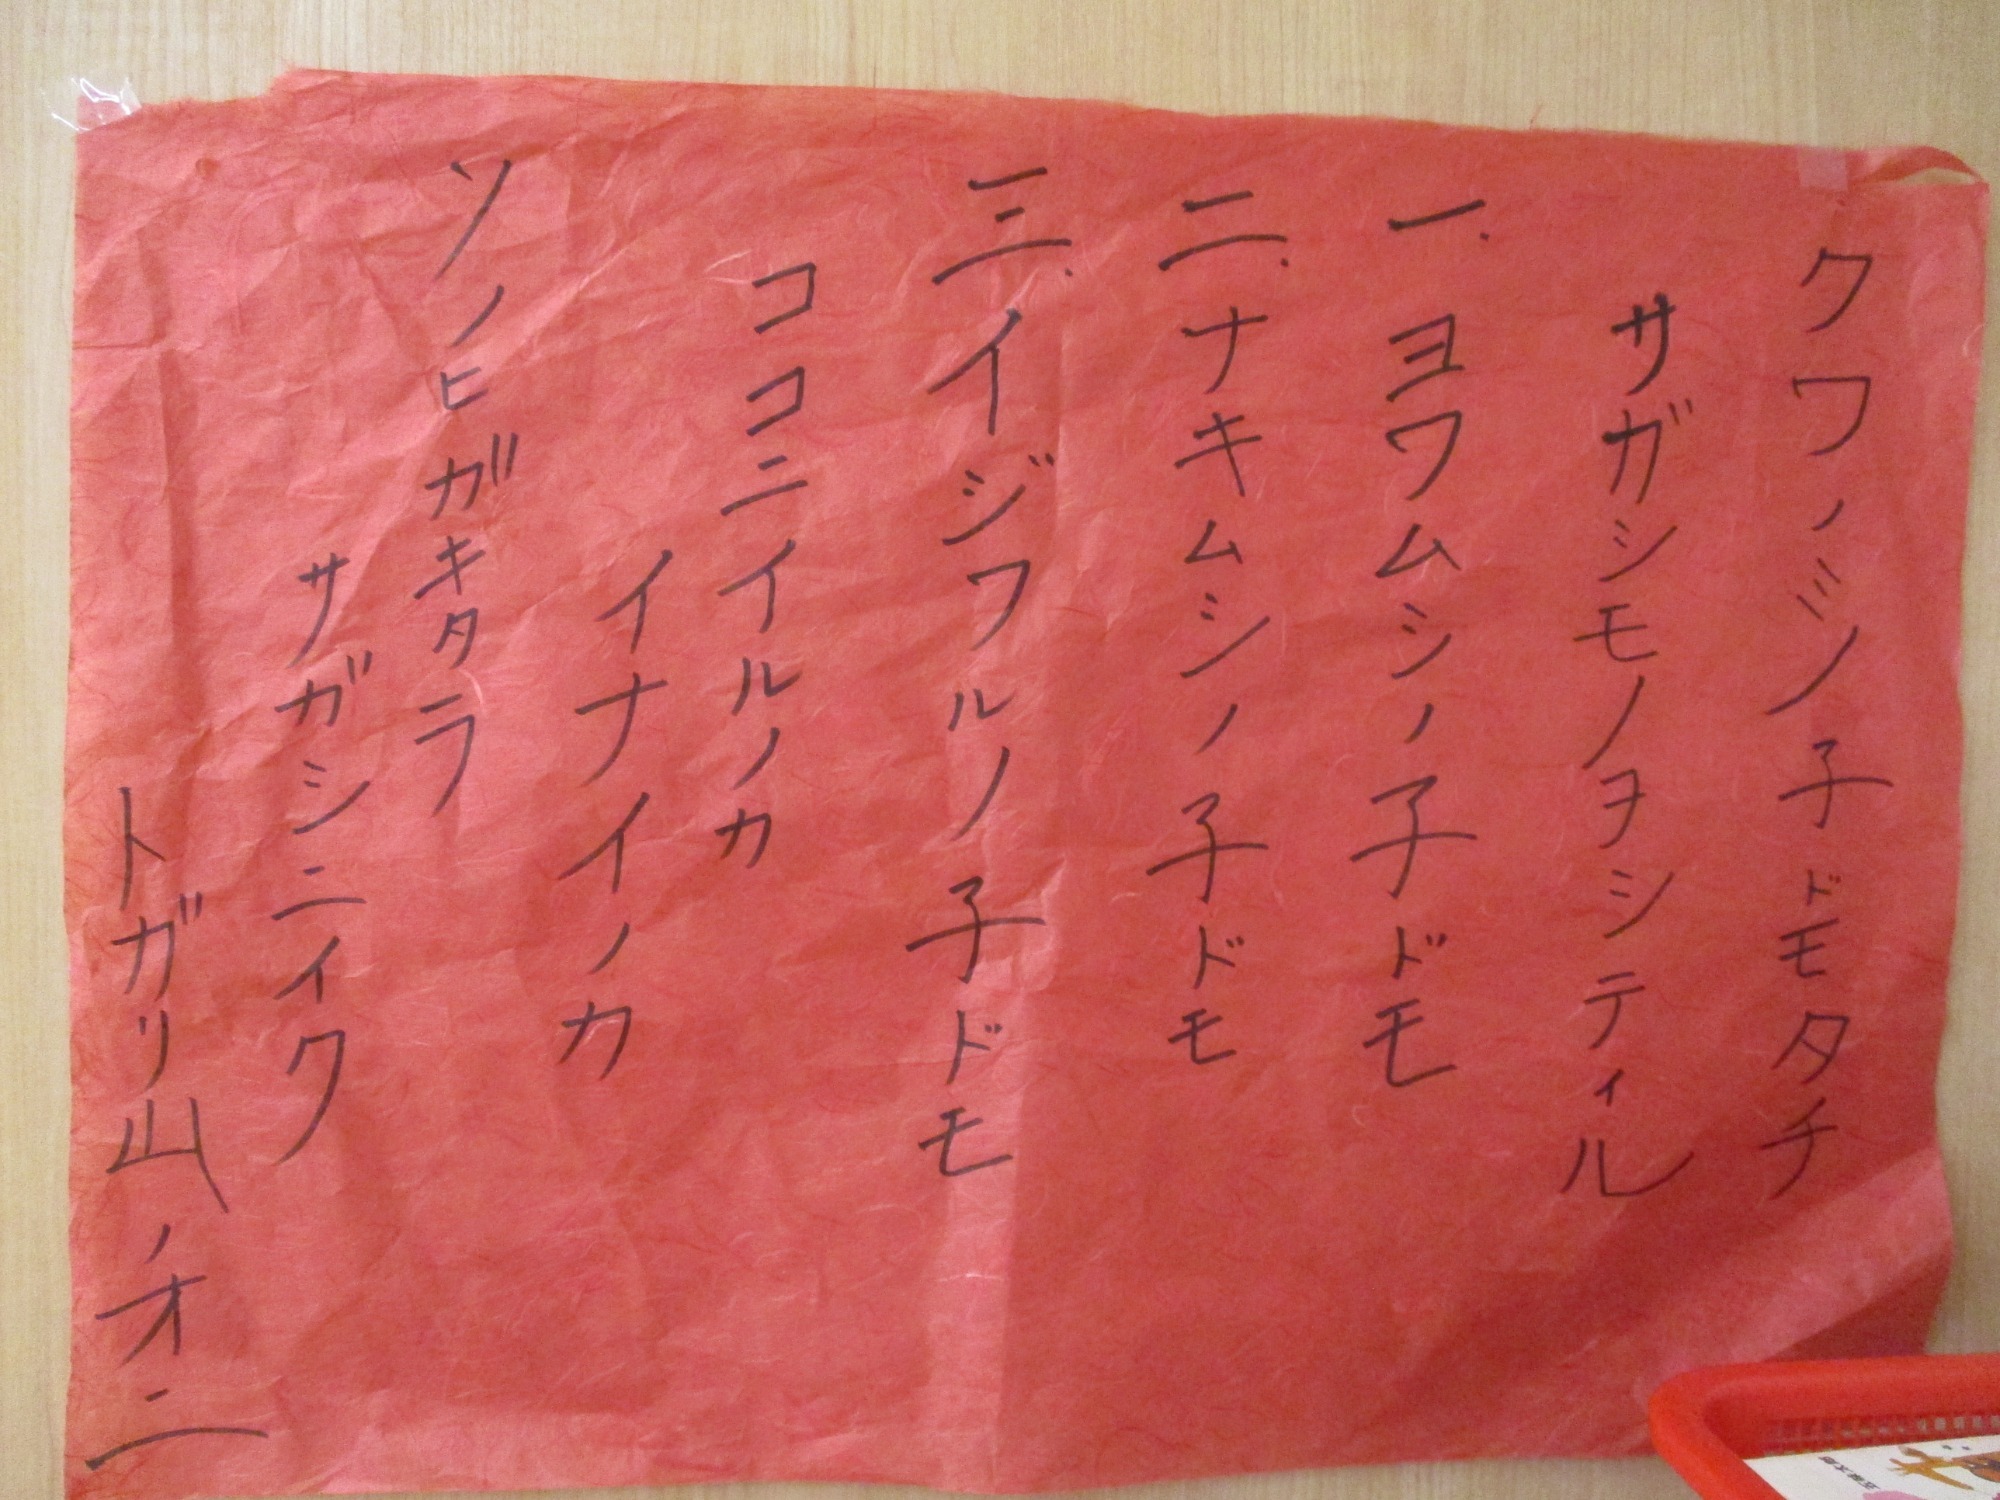 クワノミノ子ドモタチ
サガシモノヲシティル
一.ヨワムシノ子ドモ
二.ナキムシノ子ドモ
三.イジワルノ子ドモ
ココニイルノカ
イナイノカ
ソノヒガキタラ
サガシニイク
トガリ山ノオニ